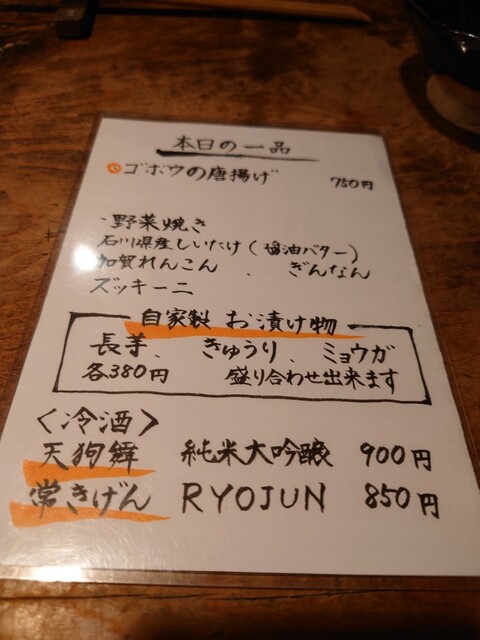 本日の一品
◎ゴボウの唐揚げ 750円
・野菜焼き
石川県産しいたけ(醤油バター)
加賀れんこん 、 ぎんなん
ズッキーニ
自家製 お漬け物
長芋、 きゅうり、 ミョウガ
各380円 盛り合わせ出来ます
<冷酒>
天狗舞 純米大吟醸 900円
常きげん RYOJUN 850円